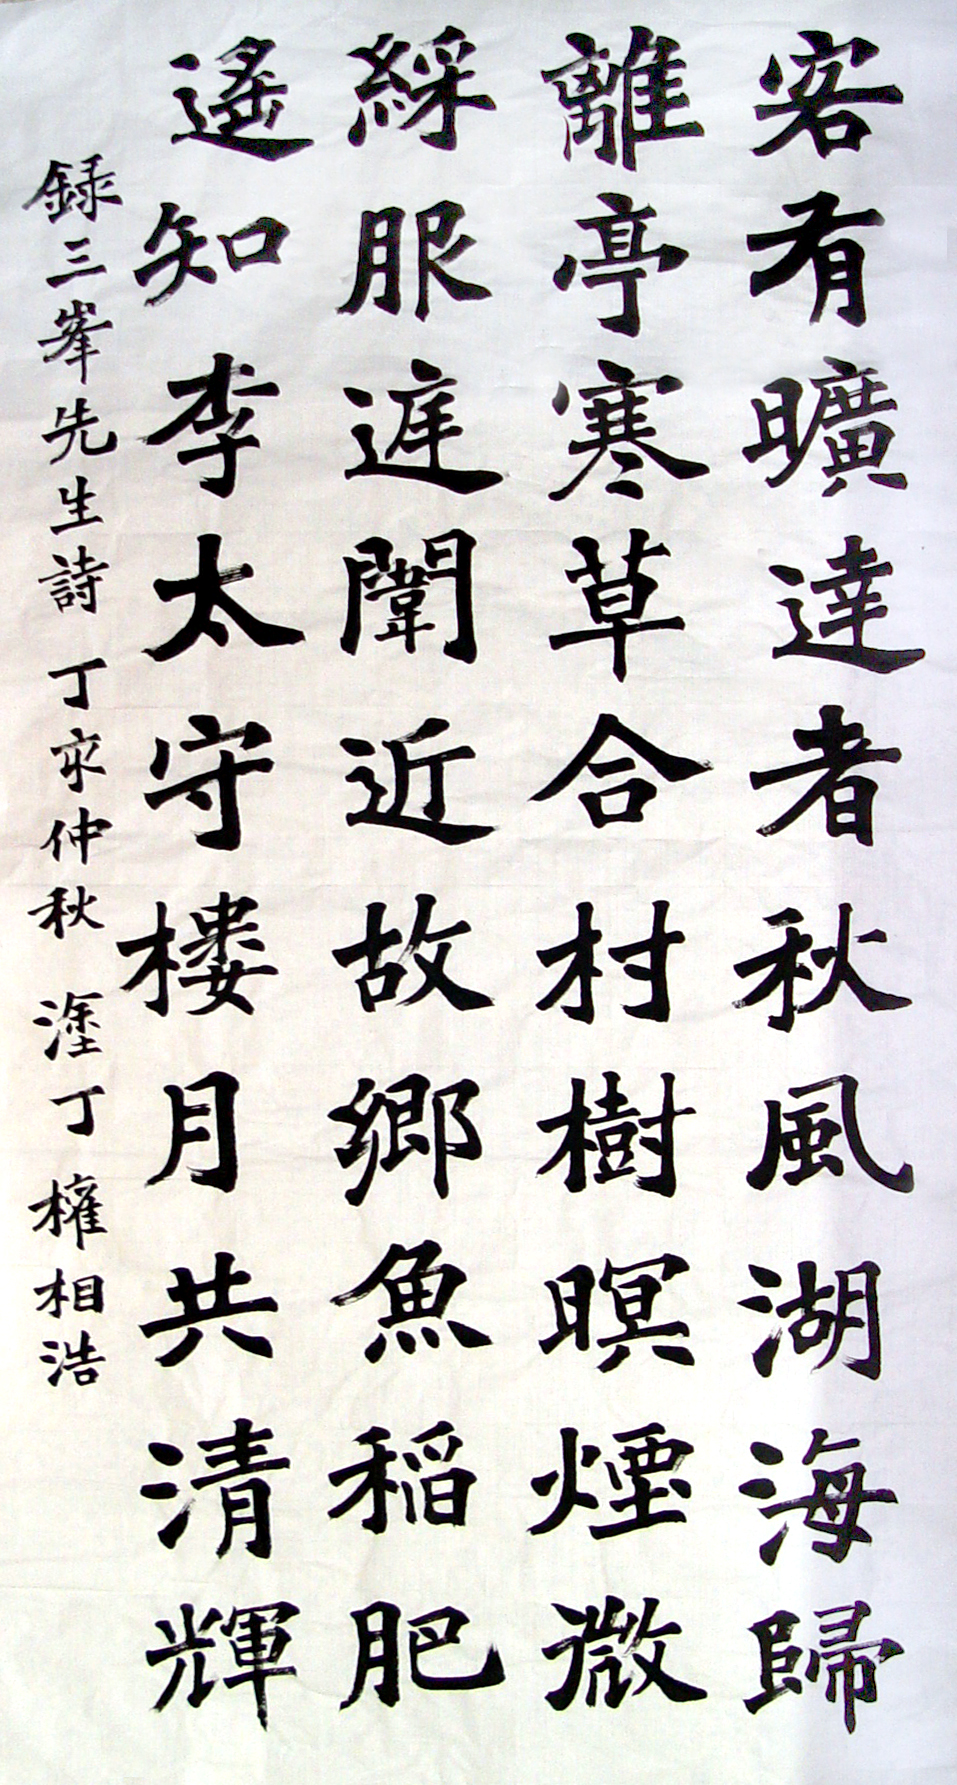 客有曠達者秋風湖海歸
離亭寒草合村樹暝煙微
綵服遅闈近故鄉魚稻肥
遙知李太守樓月共清輝
錄三峯先生詩 丁亥仲秋 塗丁 權相浩